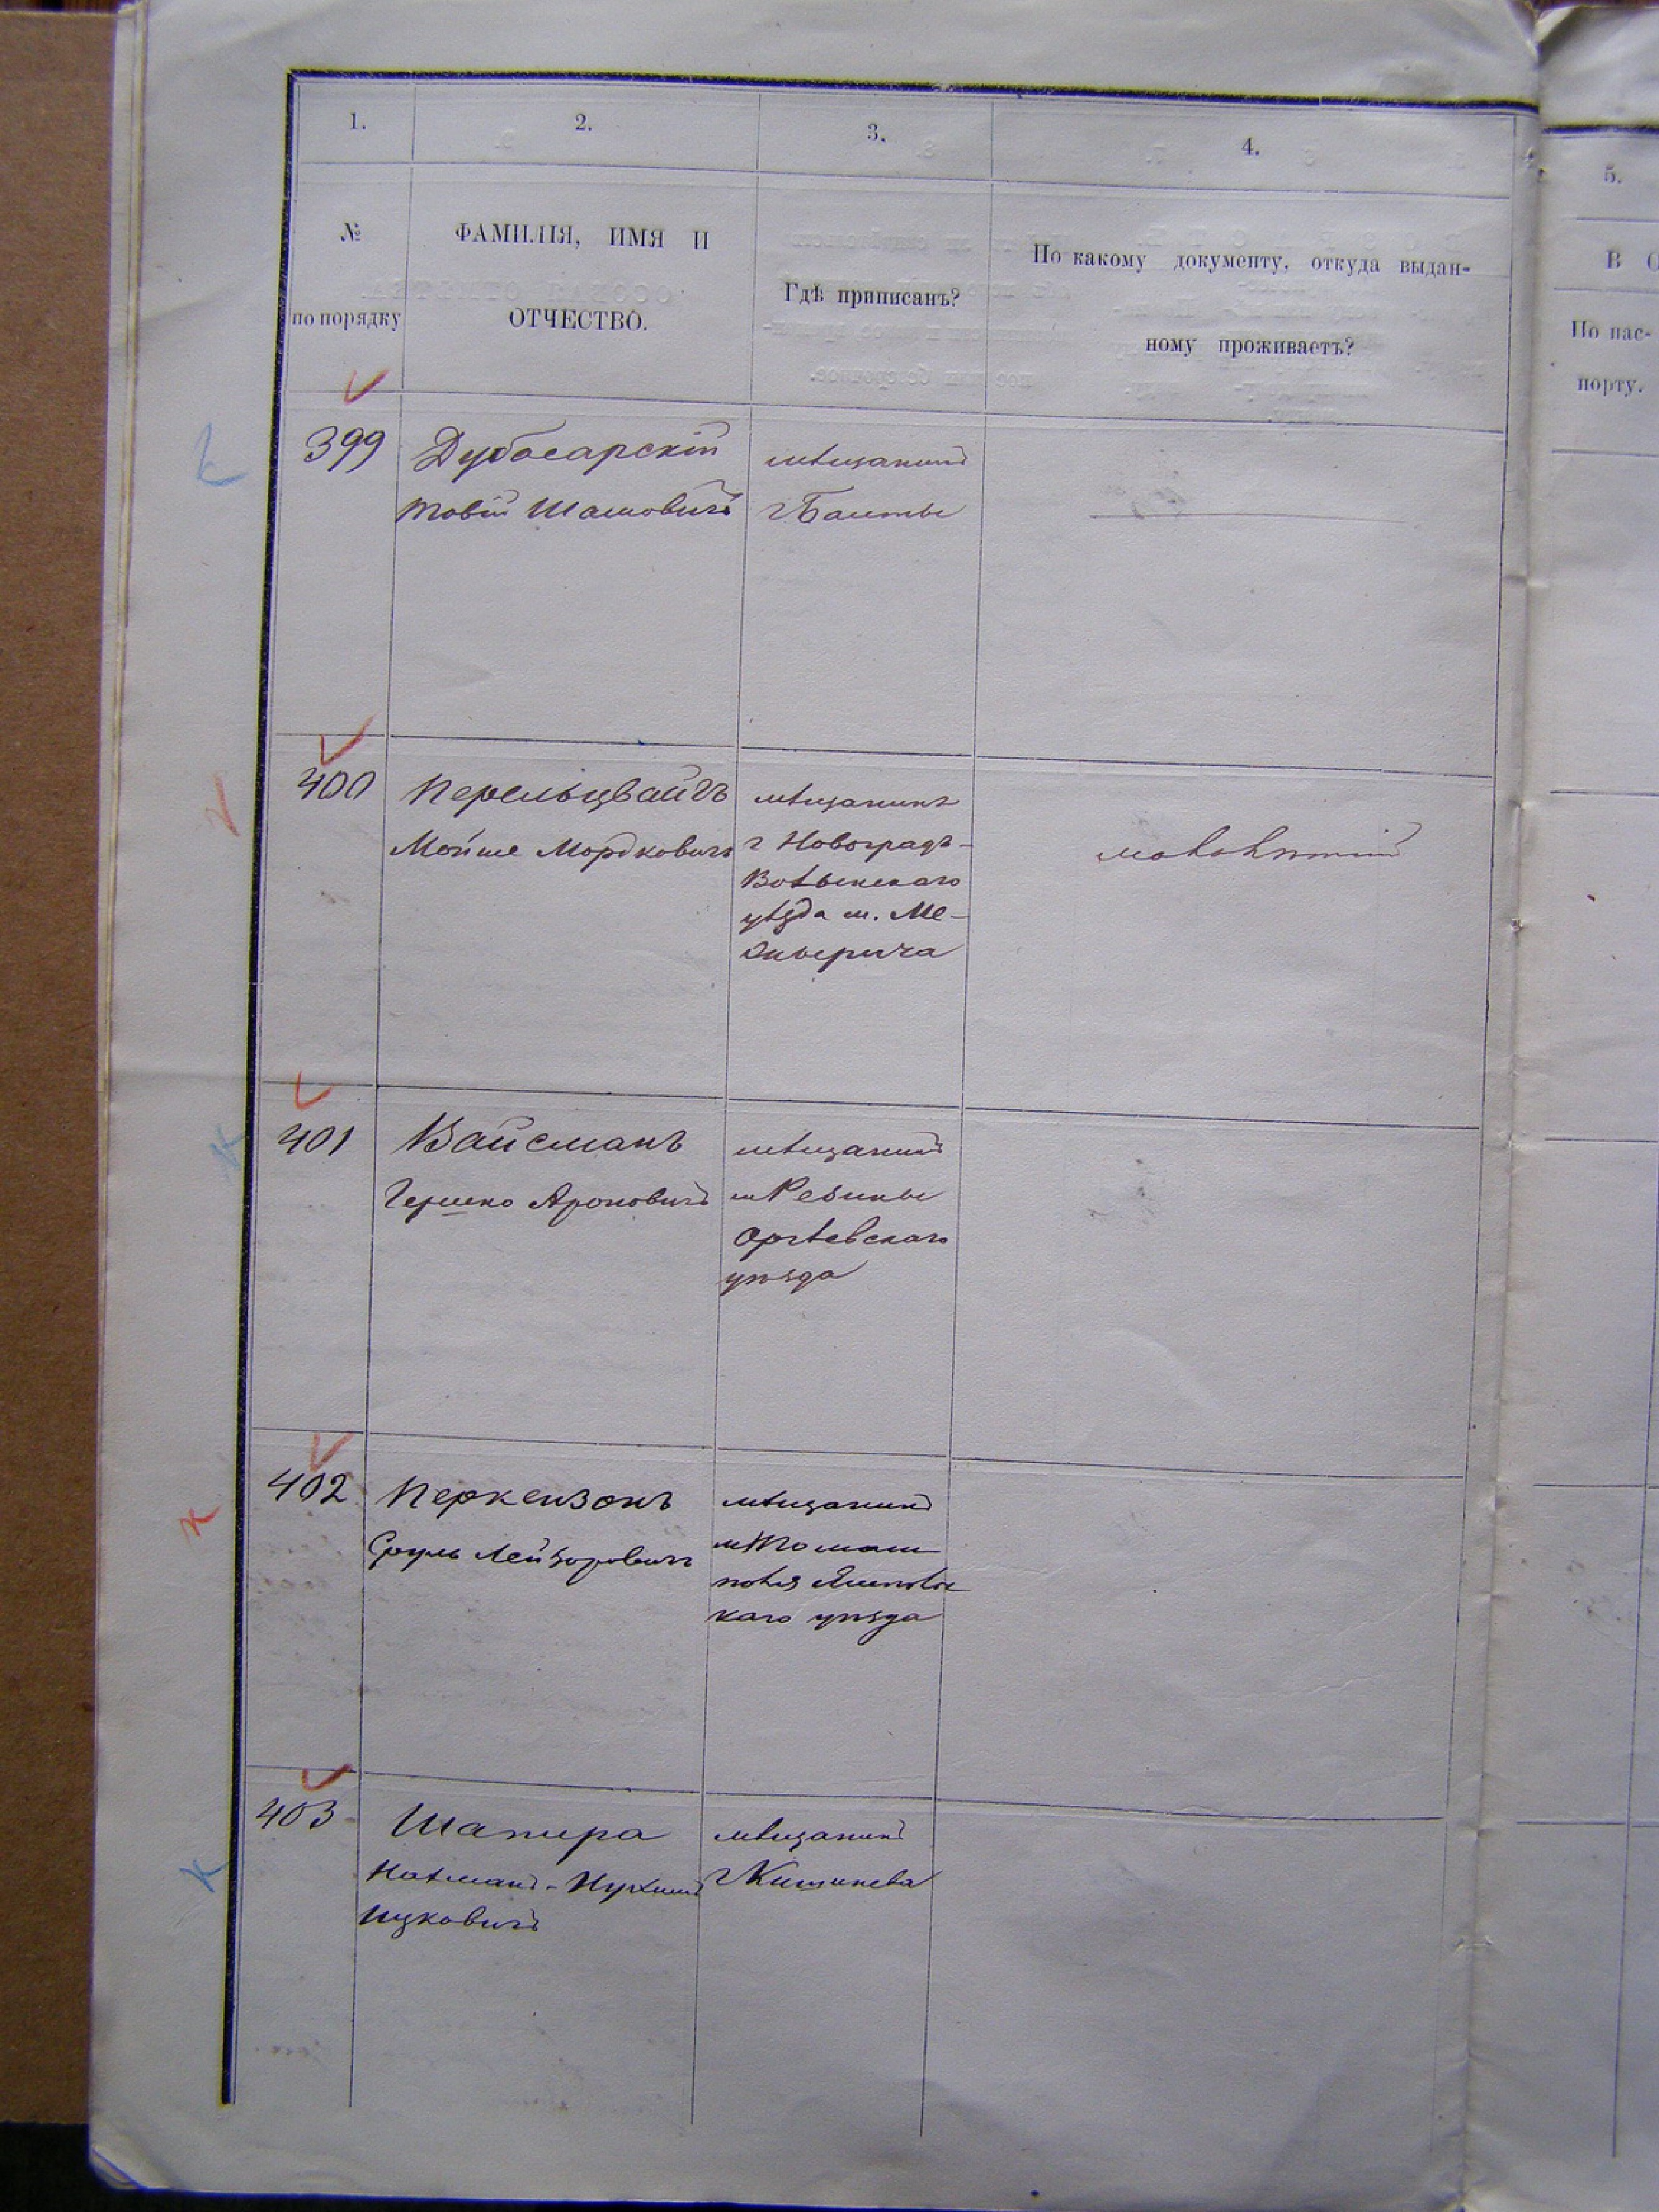 1.
2.
3.
4.
5.
№
по порядку
ФАМИЛІЯ, ИМЯ И
ОТЧЕСТВО.
Гдѣ приписанъ?
По какому документу, откуда выдан-
ному проживаетъ?
В
По пас-
порту.
399
Дубосарскій
Товій Шамовичъ
мѣщанинъ
г Балты
400
Перельцвайгъ
Мойше Мордковичъ
мѣщанинъ
г Новоградъ-
Волынскаго
уѣзда м. Ме-
жирича
малолѣтній
401
Вайсманъ
Гершко Ароновичъ
мѣщанинъ
м Резины
Оргѣевскаго
уѣзда
402
Перкензонъ
Сруль Лейзоровичъ
мѣщанинъ
м Томаш
поля Ямполь
каго уѣзда
403
Шапира
Нухимъ
Ицковичъ
мѣщанинъ
г Кишинева